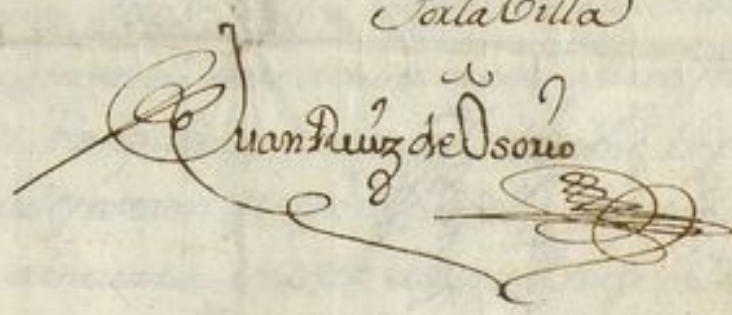 Por la Villa
Juan Ruiz de Osorio